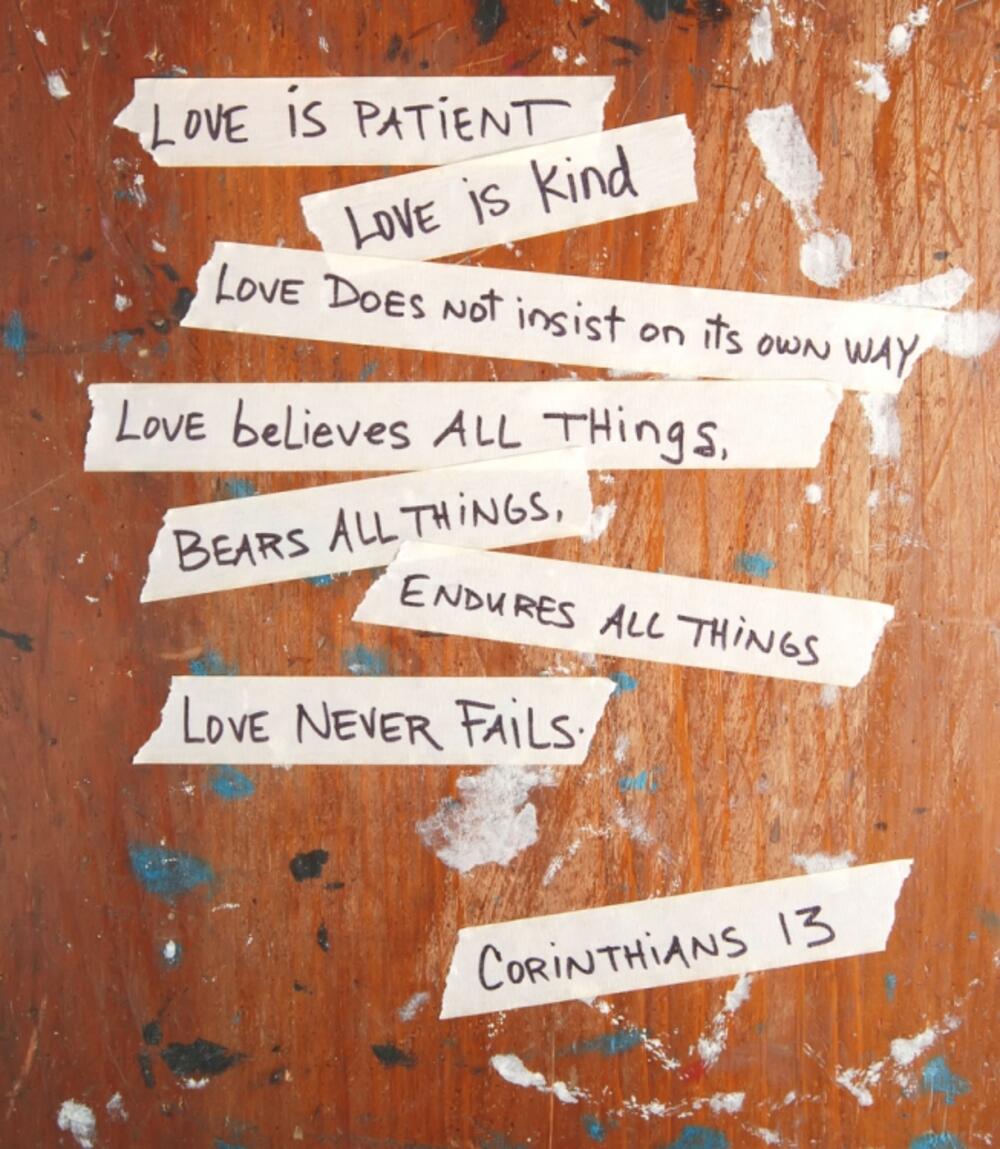 LOVE iS PATiENT
LOVE is Kind
LOVE DOES NOT insist on its OWN WAY
LOVE beLieves ALL THings,
BEARS ALL THiNGS,
ENDURES ALL THiNGS
LOVE NEVER FAiLS.
CORiNTHiANS 13